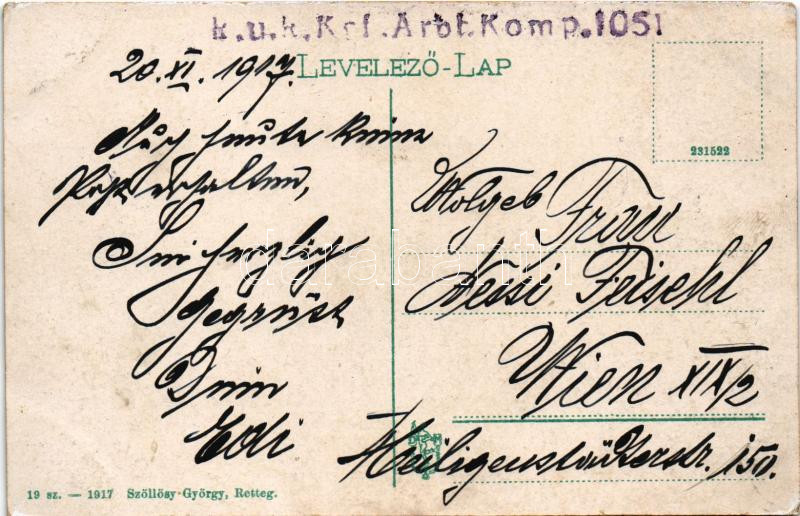 k.u.k. Krf. Arbt. Komp. 1051
20. XI. 1917.
LEVELEZŐ-LAP
231522
Auch heute keine
Post erhalten,
Sei herzlich
gegrüsst
Dein
Edi
Wolgeb
Frau
Peischl
Wien XIX/2
Heiligenstädterstr. 150.
19 sz. — 1917 Szöllösy György, Retteg.
www.darabanth.com